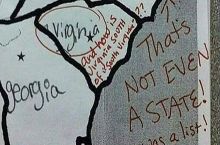 ??
Virginia
And how is
Virginia SOUTH
OF
South Virginia?
georgia
That's
NOT EVEN
A STATE!
was a list!!